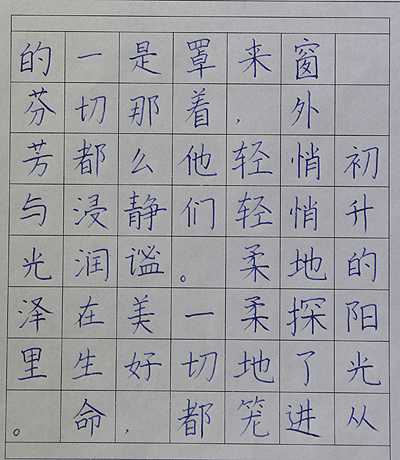 初升的阳光从
窗外悄悄地探了进
来，轻轻柔柔地笼
罩着他们。一切都
是那么静谧美好，
一切都浸润在生命
的芬芳与光泽里。